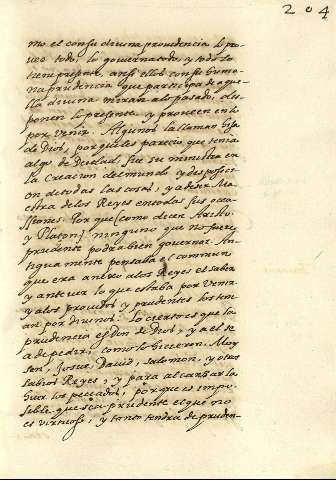 204
mo el con su divina providencia lo pro
veo todo, lo govierna todo, y todo lo
tiene presente, ansi ellos con su huma
na prudencia que participa de aque
lla divina miran a lo pasado, dis
ponen lo presente y proveen en lo
por venir. Algunos la llaman hija
de Dios, porque les parecio que tenia
algo de Deidad, fue su ministra en
la Creacion del mundo y disposici
on de todas las cosas, y a de ser Ma
estra de los Reyes en todas sus oca
siones. Por que (como dicen Aristo.
y Platon) ninguno que no fuere
prudente podra bien governar. An
tiguamente pensaba el commun
que era anexo a los Reyes el saber
y antever lo que estaba por venir
y a los proveidos y prudentes los ten
ian por divinos. Lo cierto es que la
prudencia es Don de Dios, y a el se
a de pedir, como lo hicieron. Moy
sen, Josue, David, Salomon, y otros
sabios Reyes, y para alcanzarla
huir los peccados, porque es impo
sible que sea prudente el que no
es virtuoso, y tanto tendra de pruden-